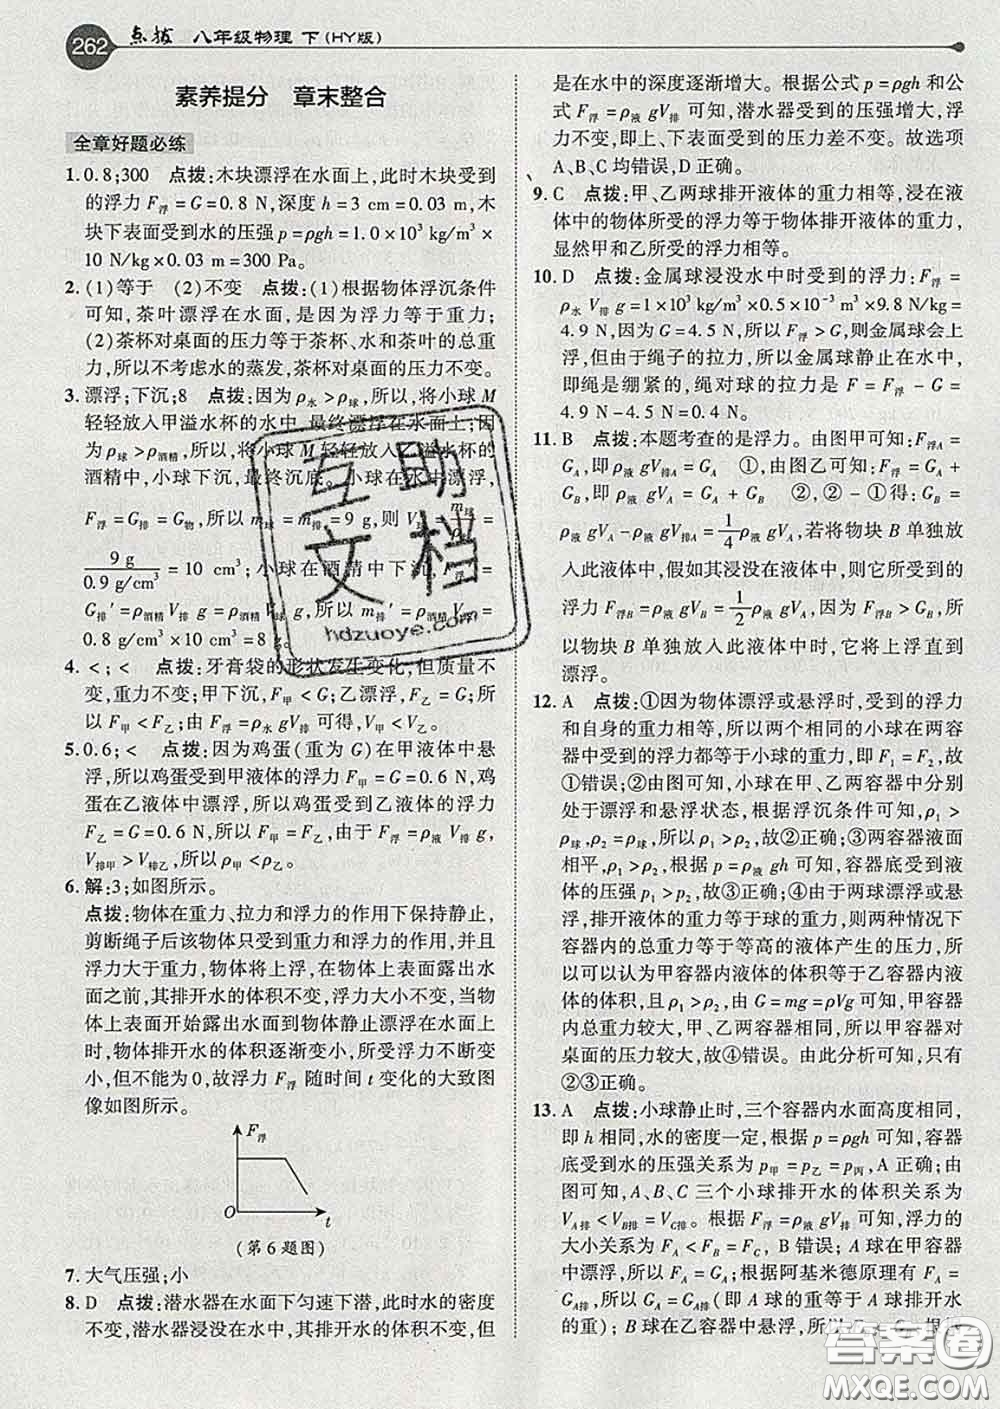 262 点拨 八年级物理 下(HY版)
素养提分 章末整合
全章好题必练
1. 0.8;300 点拨:木块漂浮在水面上,此时木块受到
的浮力 F浮=G=0.8 N,深度 h=3 cm=0.03 m,木
块下表面受到水的压强 p=ρgh=1.0×10³ kg/m³×
10 N/kg×0.03 m=300 Pa。
2. (1)等于 (2)不变 点拨:(1)根据物体浮沉条件
可知,茶叶漂浮在水面,是因为浮力等于重力;
(2)茶杯对桌面的压力等于茶杯、水和茶叶的总重
力,所以不考虑水的蒸发,茶杯对桌面的压力不变。
3. 漂浮;下沉;8 点拨:因为 ρ水>ρ球,所以,将小球 M
轻轻放入甲溢水杯的水中,最终漂浮在水面上;因
为 ρ球>ρ酒精,所以,将小球 M 轻轻放入乙溢水杯的
酒精中,小球下沉,最终沉底。小球在水中漂浮,
F浮=G排=G物,所以 m球=m排=9 g,则 V球=m球/ρ球=
9 g/0.9 g/cm³=10 cm³;小球在酒精中下沉,F浮′=
G排′=ρ酒精V排 g=ρ酒精V球 g,所以 m排′=ρ酒精V球=
0.8 g/cm³×10 cm³=8 g。
4. <;< 点拨:牙膏袋的形状发生变化,但质量不
变,重力不变;甲下沉,F甲<G;乙漂浮,F乙=G;所
以 F甲<F乙;由 F浮=ρ水 gV排 可得,V甲<V乙。
5. 0.6;< 点拨:因为鸡蛋(重为 G)在甲液体中悬
浮,所以鸡蛋受到甲液体的浮力 F甲=G=0.6 N,鸡
蛋在乙液体中漂浮,所以鸡蛋受到乙液体的浮力
F乙=G=0.6 N,所以 F甲=F乙,由于 F浮=ρ液 V排 g,
V排甲>V排乙,所以 ρ甲<ρ乙。
6. 解:3;如图所示。
点拨:物体在重力、拉力和浮力的作用下保持静止,
剪断绳子后该物体只受到重力和浮力的作用,并且
浮力大于重力,物体将上浮,在物体上表面露出水
面之前,其排开水的体积不变,浮力大小不变,当物
体上表面开始露出水面到物体静止漂浮在水面上
时,物体排开水的体积逐渐变小,所受浮力不断变
小,但不能为 0,故浮力 F浮 随时间 t 变化的大致图
像如图所示。
F浮
O t
(第6题图)
7. 大气压强;小
8. D 点拨:潜水器在水面下匀速下潜,此时水的密度
不变,潜水器浸没在水中,其排开水的体积不变,但
是在水中的深度逐渐增大。根据公式 p=ρgh 和公
式 F浮=ρ液 gV排 可知,潜水器受到的压强增大,浮
力不变,即上、下表面受到的压力差不变。故选项
A、B、C 均错误,D 正确。
9. C 点拨:甲、乙两球排开液体的重力相等,浸在液
体中的物体所受的浮力等于物体排开液体的重力,
显然甲和乙所受的浮力相等。
10. D 点拨:金属球浸没水中时受到的浮力:F浮=
ρ水 V排 g=1×10³ kg/m³×0.5×10⁻³ m³×9.8 N/kg=
4.9 N,因为 G=4.5 N,所以 F浮>G,则金属球会上
浮,但由于绳子的拉力,所以金属球静止在水中,
即绳是绷紧的,绳对球的拉力是 F=F浮-G=
4.9 N-4.5 N=0.4 N。
11. B 点拨:本题考查的是浮力。由图甲可知:F浮A=
GA,即 ρ液 gV排A=GA ①,由图乙可知:F浮=GA+
GB,即 ρ液 gVA=GA+GB ②,②-①得:GB=
ρ液 gVA-ρ液 gV排A=1/4 ρ液 gVA,若将物块 B 单独放
入此液体中,假如其浸没在液体中,则它所受到的
浮力 F浮B=ρ液 gVB=1/2 ρ液 gVA,因为 F浮B>GB,所
以物块 B 单独放入此液体中时,它将上浮直到
漂浮。
12. A 点拨:①因为物体漂浮或悬浮时,受到的浮力
和自身的重力相等,所以两个相同的小球在两容
器中受到的浮力都等于小球的重力,即 F₁=F₂,故
①错误;②由图可知,小球在甲、乙两容器中分别
处于漂浮和悬浮状态,根据浮沉条件可知,ρ₁>
ρ球,ρ₂=ρ球,所以 ρ₁>ρ₂,故②正确;③两容器液面
相平,ρ₁>ρ₂,根据 p=ρ液 gh 可知,容器底受到液
体的压强 p₁>p₂,故③正确;④由于两球漂浮或悬
浮,排开液体的重力等于球的重力,则两种情况下
容器内的总重力等于等高的液体产生的压力,所
以可以认为甲容器内液体的体积等于乙容器内液
体的体积,且 ρ₁>ρ₂,由 G=mg=ρVg 可知,甲容器
内总重力较大,甲、乙两容器相同,所以甲容器对
桌面的压力较大,故④错误。由此分析可知,只有
②③正确。
13. A 点拨:小球静止时,三个容器内水面高度相同,
即 h 相同,水的密度一定,根据 p=ρgh 可知,容器
底受到水的压强关系为 p甲=p乙=p丙,A 正确;由
图可知,A、B、C 三个小球排开水的体积关系为
VA排<VB排=VC排。根据 F浮=ρ液 gV排 可知,浮力的
大小关系为 FA<FB=FC,B 错误;A 球在甲容器
中漂浮,所以 FA=GA;根据阿基米德原理有 FA=
GA排,所以 GA=GA排(即 A 球的重力等于 A 球排开水的
重);B 球在乙容器中悬浮,所以 FB=GB,根据
互助文档
hdzuoye.com
答案圈
MXQE.COM